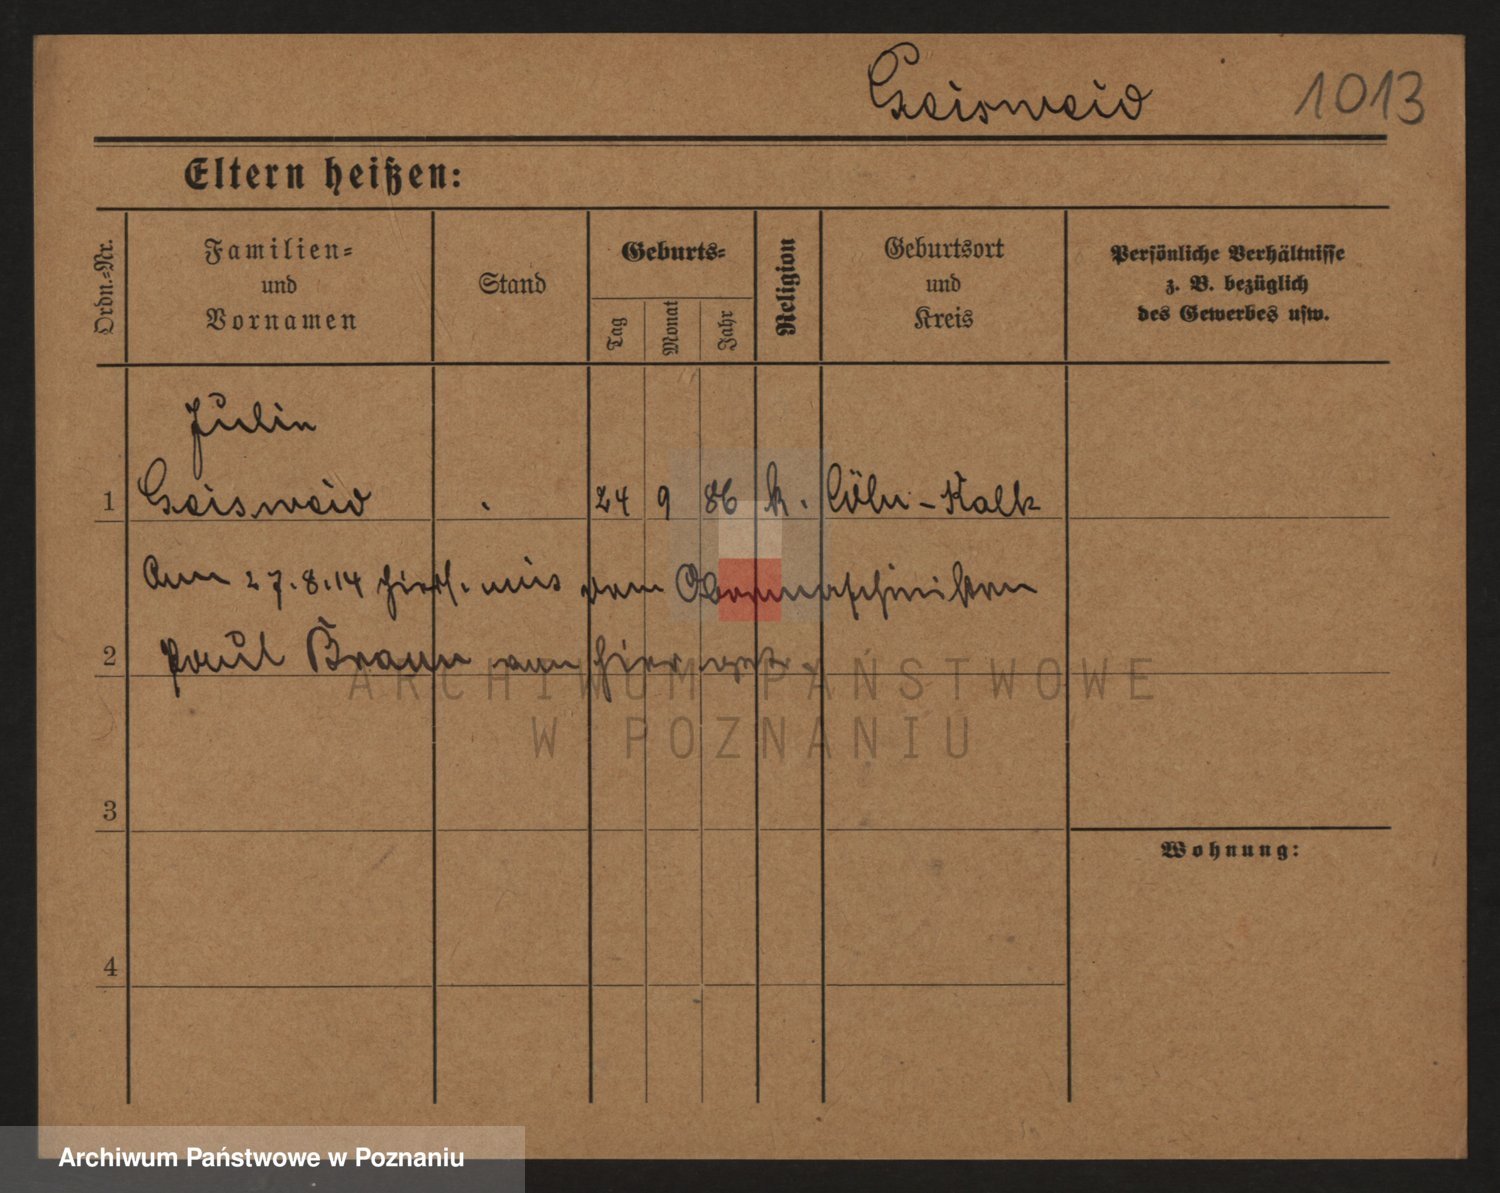 Geisweid 1013
Eltern heißen:
Ordn.=Nr.
Familien=
und
Vornamen
Stand
Geburts=
Tag
Monat
Jahr
Religion
Geburtsort
und
Kreis
Persönliche Verhältnisse
z. B. bezüglich
des Gewerbes usw.
Julie
1 Geisweid . 24 9 86 k. Cöln-Kalk
Am 27.8.14 hier mit dem Obermaschinisten
2 Paul Braun von hier
3
4
Wohnung:
ARCHIWUM PAŃSTWOWE
W POZNANIU
Archiwum Państwowe w Poznaniu